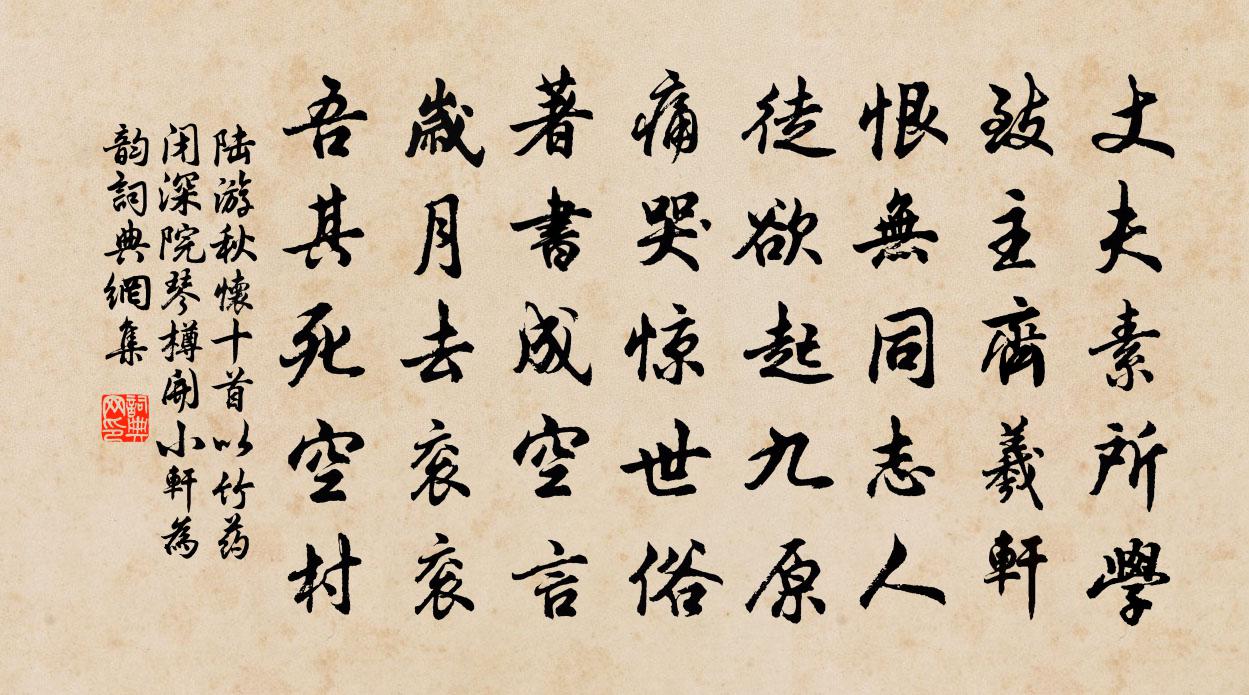 丈夫素所學
致主齊羲軒
恨無同志人
徒欲起九原
痛哭惊世俗
著書成空言
歲月去衮衮
吾其死空村
陆游秋懷十首以竹药
闭深院琴樽開小軒為
韵詞典網集
詞典网印